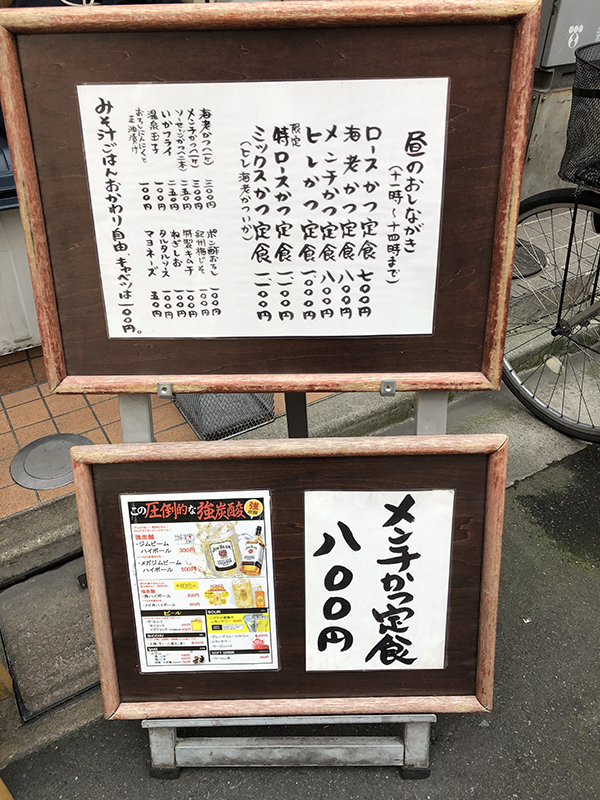 昼のおしながき
(十一時〜十四時まで)
ロースかつ定食 七〇〇円
海老かつ定食 八〇〇円
メンチかつ定食 八〇〇円
ヒレかつ定食 一〇〇〇円
限定
特ロースかつ定食 一一〇〇円
ミックスかつ定食 一一〇〇円
(ヒレ海老かついか)
海老かつ(一ヶ) 三〇〇円
メンチかつ(一ヶ) 三〇〇円
ソーセージかつ(二本) 二五〇円
いかフライ 一五〇円
温泉玉子 一〇〇円
おろしにんにくと
正油漬け 一〇〇円
ポン酢おろし 一〇〇円
紀州梅じそ 一〇〇円
特製キムチ 一〇〇円
ねぎしお 一〇〇円
タルタルソース 一〇〇円
マヨネーズ 五〇円
みそ汁ごはんおかわり自由、キャベツは一〇〇円。
この圧倒的な強炭酸
強炭酸
・ジムビーム
ハイボール 300円
・メガジムビーム
ハイボール 500円
JIM BEAM
強炭酸
・角ハイボール
ビール
SOUR
SOFT DRINK
メンチかつ定食
八〇〇円